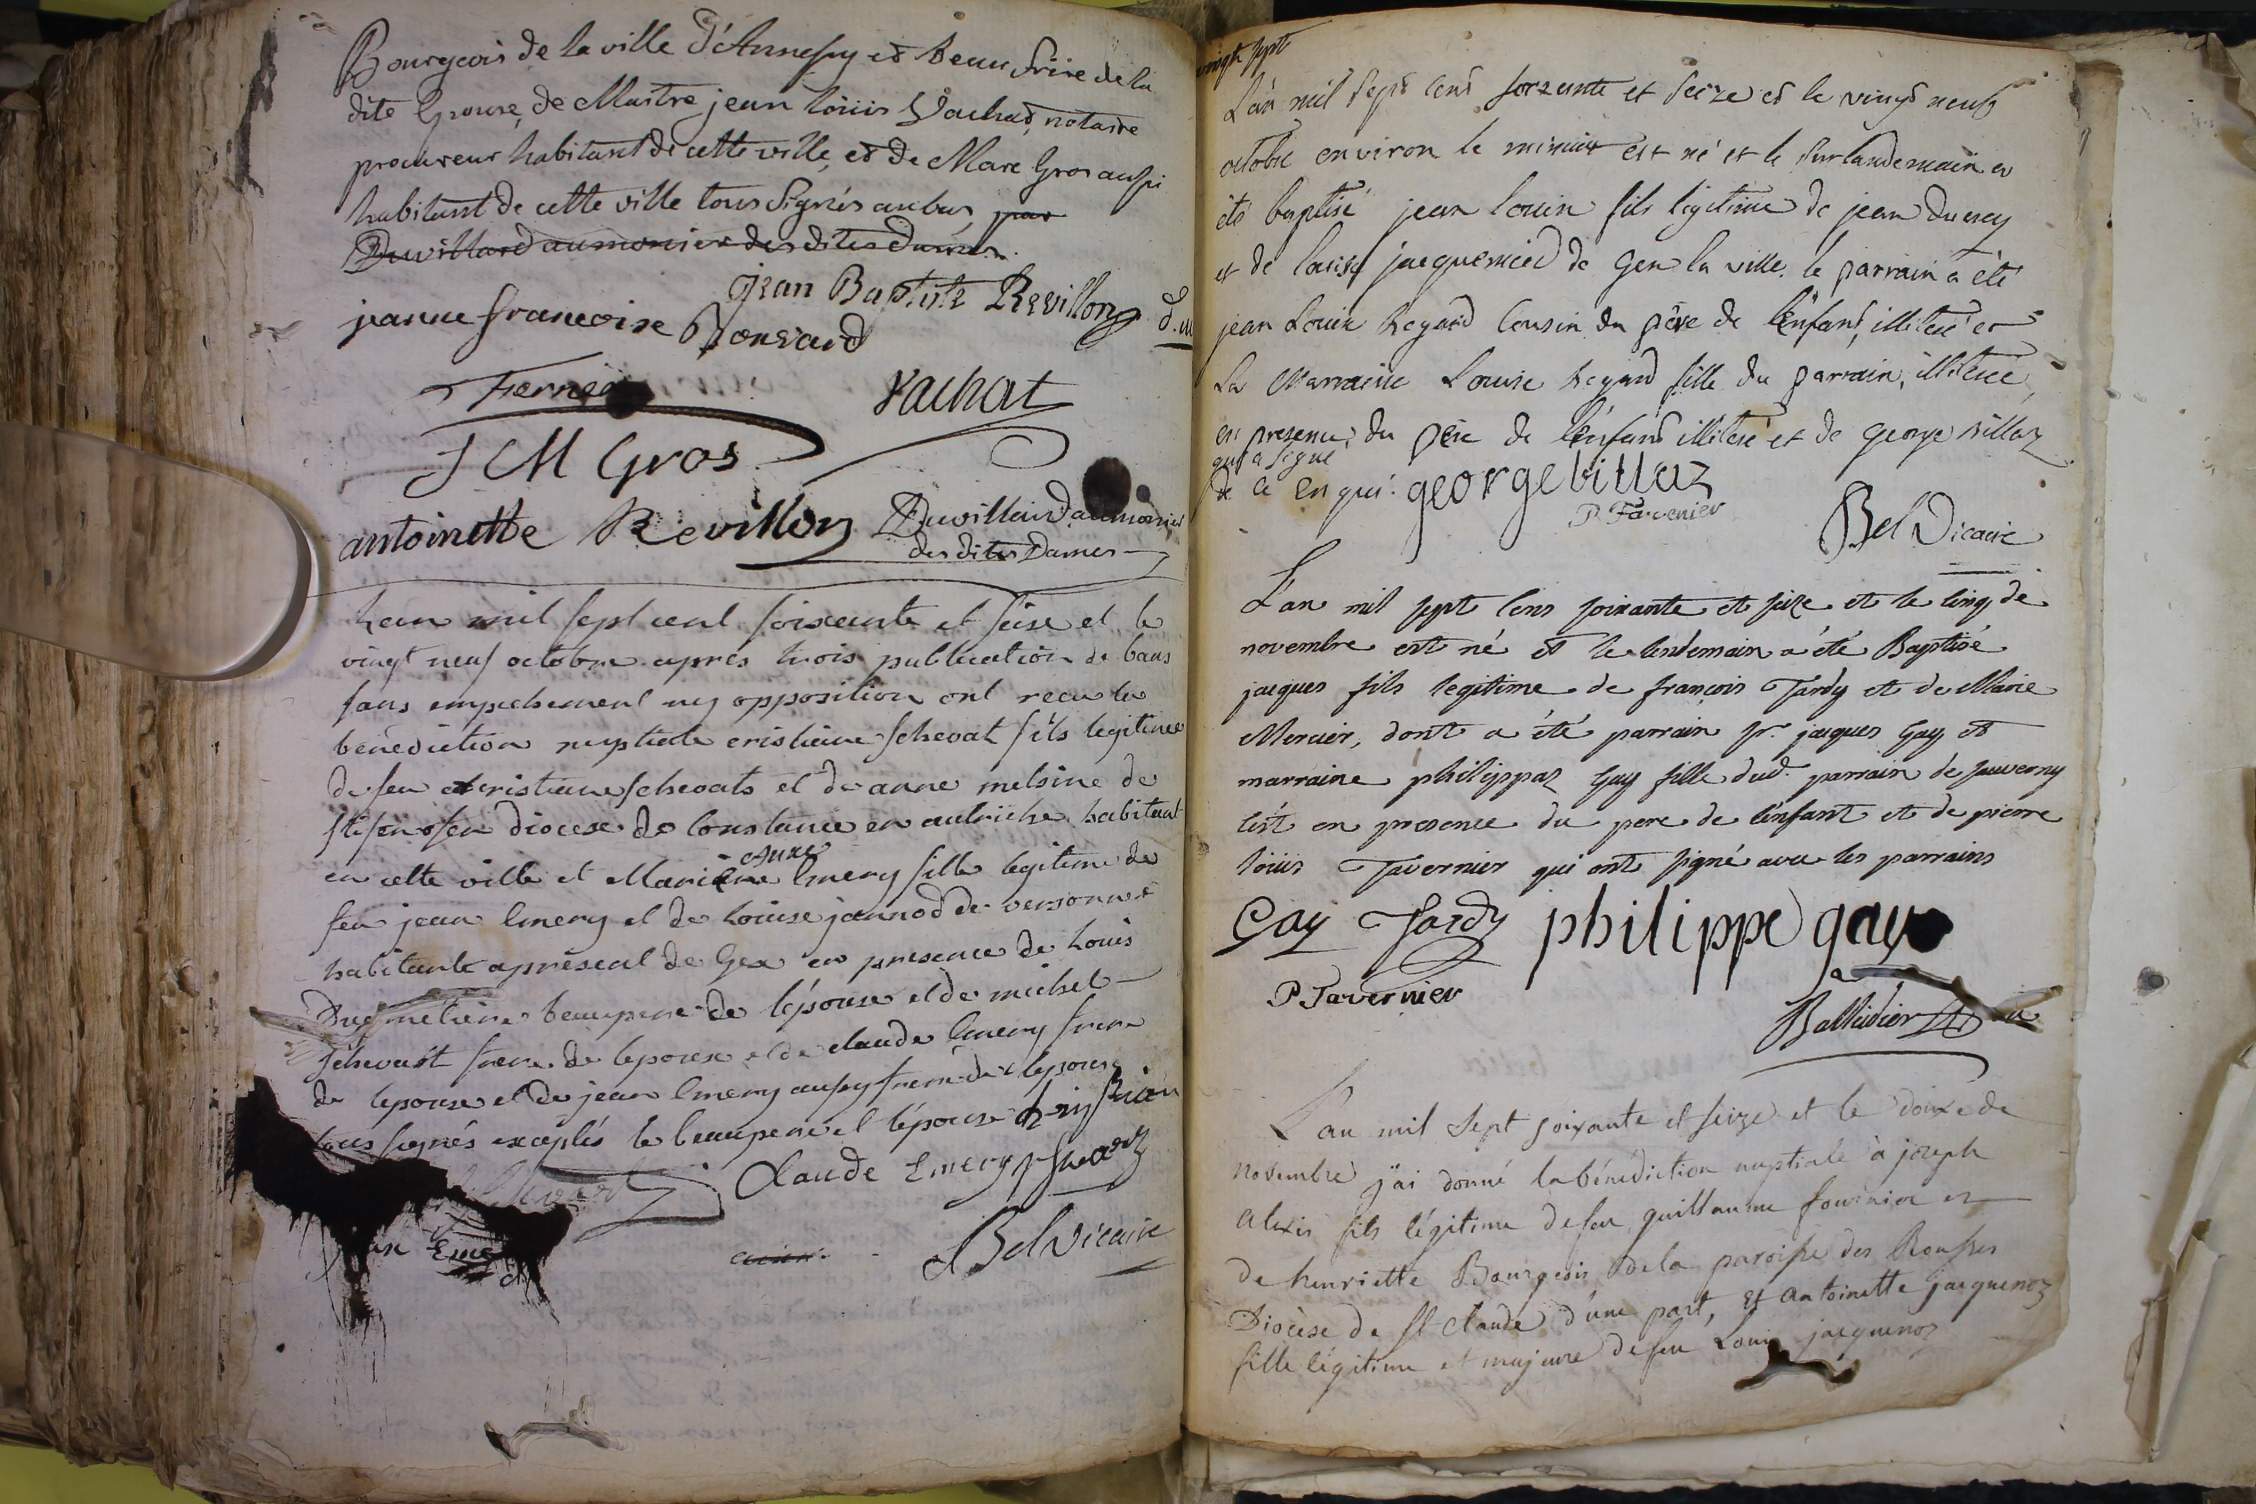 Bourgeois de la ville d'Annessy et beau frère de la
dite Epouse, de Maitre jean loüis Vachat, notaire
procureur habitant de cette ville, et de Marc Gros aussi
habitant de cette ville tous signés au bas par
Duvillard aumonier des dites dames.
jean Baptiste Revillon
jeanne francoise Ronsard
Fernex
Vachat
J M Gros
antoinette Revillon Duvillard aumonier
des dites Dames
L'an mil sept cent soixante et seise et le
vingt neuf octobre apres trois publication de bans
sans empechement ny opposition ont recu la
bénédiction nuptiale cristiane schevat fils legitime
de feu cristiane schevats et de anne melsine de
diocese de Constance en autriche habitant
en cette ville et Marie Anne Emery fille legitime de
feu jean Emery et de Loüise jannod de versonnex
habitante apresent de Gex en presence de Louis
beaupere de l'épouse et de michel
schevast frere de lepoux et de claude Emery frere
de lepouse et de jean Emery aussy frere de lepouse
tous signés exceptés le beaupere et l'épouse
Claude Emery
Bel Vicaire
vingt sept
L'an mil sept cent soixante et seize et le vingt neuf
octobre environ le minuit est né et le surlandemain a
été baptisé jean louis fils légitime de jean Ducrey
et de Louise jacquemier de Gex la ville. le parrain a été
jean Louis Regard Cousin du père de l'Enfant, illiteré et
La Marraine Louise Regard fille du parrain, illiterée,
en presence du père de l'enfant illiteré et de george villaz
qui a signé
de ce enquis. george villaz
P. Tavernier
Bel Vicaire
L'an mil sept cens soixante et seize et le cinq de
novembre est né et le lendemain a été Baptisé
jacques fils legitime de françois Tardy et de Marie
Mercier, dont a été parrain Sr. jacques Gay et
marraine philippaz Gay fille dud. parrain de sauverny
c'est en presence du pere de l'enfant et de pierre
loüis Tavernier qui ont signé avec les parrains
Gay Tardy philippe gay
P Tavernier
Balleidier
L'an mil sept soixante et seize et le douze de
novembre j'ai donné la bénédiction nuptiale à joseph
alexis fils légitime de feu guillaume fournier et
de henriette Bourgeois de la paroisse des Rousses
Diocèse de St Claude d'une part, et antoinette jacquenoz
fille légitime et majeure de feu Louis jacquenoz